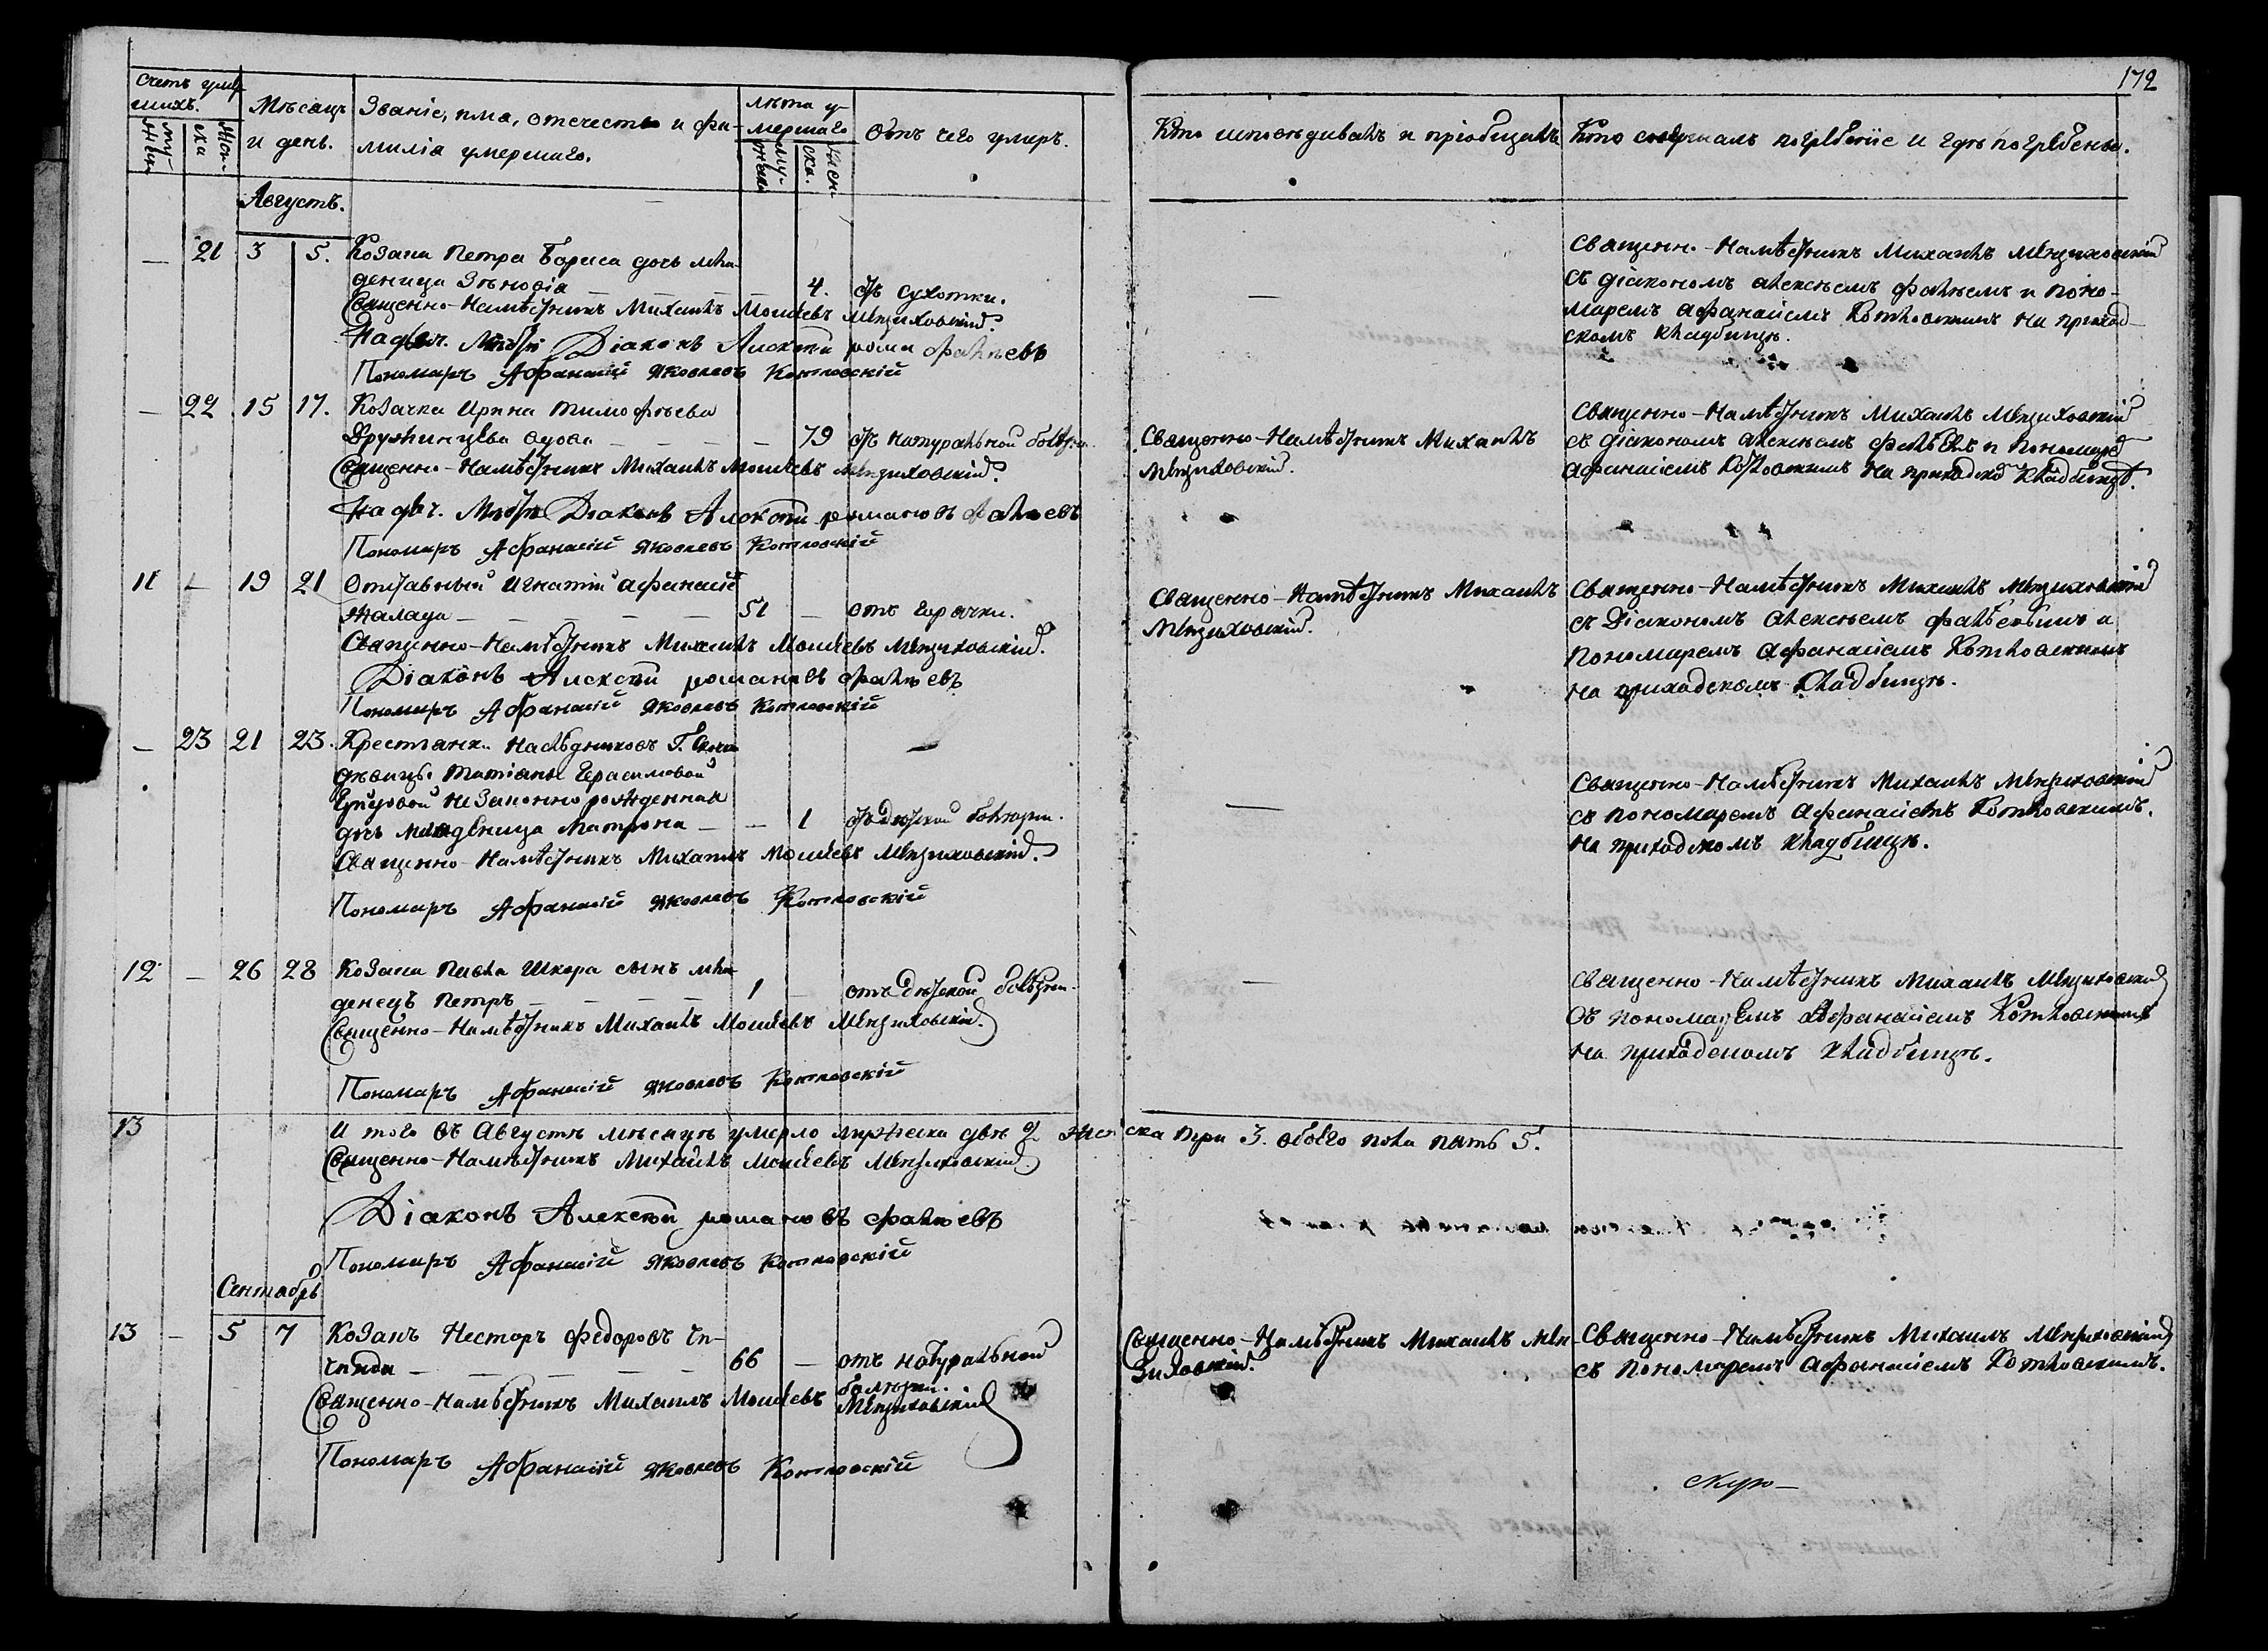 172
Счетъ умер
шихъ.
Муж
ска
Жен
Мѣсяцъ
и день.
Званіе, имя, отечество и фа-
милія умершаго.
лѣта у-
мершаго
муж
ска.
жен
Отъ чего умеръ.
Кто исповѣдывалъ и пріобщалъ
Кто совершалъ погребеніе и гдѣ погребены.
Августъ.
— 21 3 5. Козака Петра Бориса дочь мла-
деница Зѣновія — — — — 4. отъ сухотки. —
Священно-Намѣстникъ Михаилъ Моисеевъ Мензиховскій.
Надѣч. Діаконъ Алексѣй рома Фалѣевъ
Пономаръ Афанасій Яковлевъ Котловскій
Священно-Намѣстникъ Михаилъ Мензиховскій
съ діакономъ алексѣемъ фалѣемъ и поно-
маремъ афанасіемъ Котловскимъ на приход-
скомъ кладбищѣ.
— 22 15 17. Козачка Ирина Тимофѣева
вдова — — — — 79 отъ натуральной болѣзни
Священно-Намѣстникъ Михаилъ Моисеевъ Мензиховскій.
Надѣч. Діаконъ Алексѣй романовъ Фалѣевъ
Пономаръ Афанасій Яковлевъ Котловскій
Священно-Намѣстникъ Михаилъ
Мензиховскій.
Священно-Намѣстникъ Михаилъ Мензиховскій
съ діакономъ алексѣемъ и пономаре
афанасіемъ Котловскимъ на приходско кладбищѣ.
11 — 19 21 Отставный Игнатій афанасіе
Жалада — — — — 51 — отъ горячки.
Священно-Намѣстникъ Михаилъ Моисеевъ Мензиховскій.
Діаконъ Алексѣй романовъ Фалѣевъ
Пономаръ Афанасій Яковлевъ Котловскій
Священно-Намѣстникъ Михаилъ
Мензиховскій.
Священно-Намѣстникъ Михаилъ Мензиховскій
съ Діакономъ алексѣемъ фалѣевымъ и
Пономаремъ афанасіемъ Котловскимъ
на приходскомъ кладбищѣ.
— 23 21 23. Крестянки Наслѣдниковъ Г.
дѣвицы Татіаны Герасимовой
незаконнорожденная
дочь младеница Матрона — — 1 отъ дѣтской болѣзни. —
Священно-Намѣстникъ Михаилъ Моисеевъ Мензиховскій.
Пономаръ Афанасій Яковлевъ Котловскій
Священно-Намѣстникъ Михаилъ Мензиховскій
съ пономаремъ афанасіемъ Котловскимъ.
на приходскомъ кладбищѣ.
12 — 26 28 Козака Павла Шкора сынъ мла
денецъ Петръ — — — — 1 — отъ дѣтской болѣзни. —
Священно-Намѣстникъ Михаилъ Моисеевъ Мензиховскій.
Пономаръ Афанасій Яковлевъ Котловскій
Священно-Намѣстникъ Михаилъ Мензиховскій
Съ пономаремъ Афанасіемъ Котловскимъ
на приходскомъ кладбищѣ.
13 И того въ Августѣ мѣсяцѣ умерло мужеска двѣ 2 женска три 3. обоего пола пять 5.
Священно-Намѣстникъ Михаилъ Моисеевъ Мензиховскій.
Діаконъ Алексѣй романовъ Фалѣевъ
Пономаръ Афанасій Яковлевъ Котловскій
Сентябрь
13 — 5 7 Козакъ Несторъ Федоровъ Чи-
— — — — 66 — отъ натуральной
болѣзни.
Священно-Намѣстникъ Михаилъ Моисеевъ Мензиховскій
Пономаръ Афанасій Яковлевъ Котловскій
Священно-Намѣстникъ Михаилъ Мен-
зиховскій.
Священно-Намѣстникъ Михаилъ Мензиховскій
съ пономаремъ Афанасіемъ Котловскимъ.